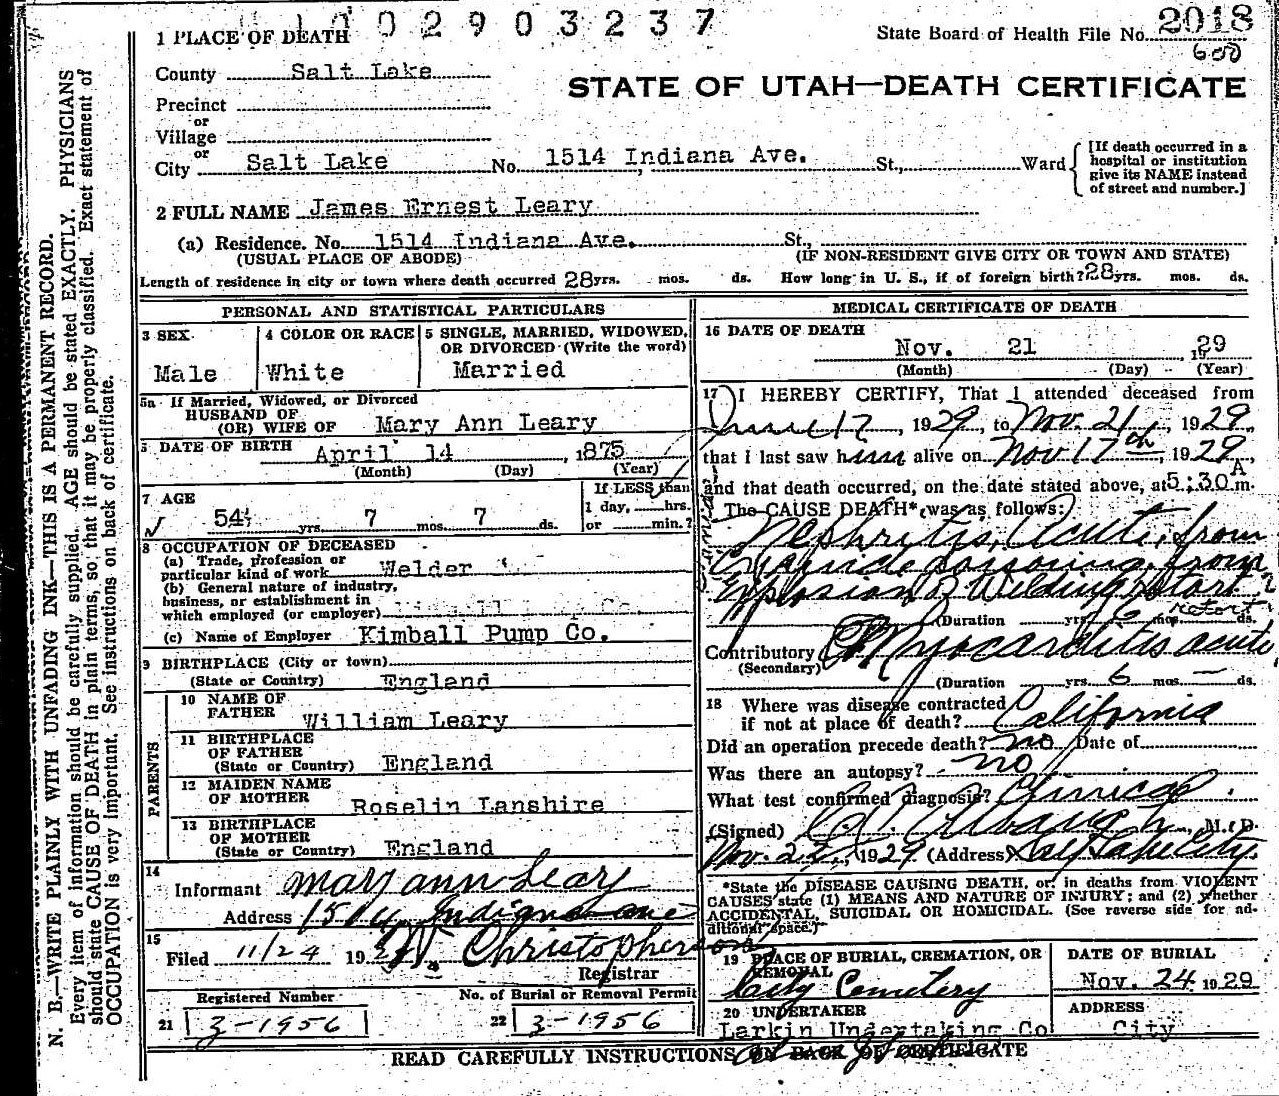 1002903237
1 PLACE OF DEATH
State Board of Health File No. 2018
600
County Salt Lake
STATE OF UTAH—DEATH CERTIFICATE
Precinct
or
Village
or
City Salt Lake No. 1514 Indiana Ave. St., Ward
[If death occurred in a
hospital or institution
give its NAME instead
of street and number.]
2 FULL NAME James Ernest Leary
(a) Residence. No. 1514 Indiana Ave. St.,
(USUAL PLACE OF ABODE) (IF NON-RESIDENT GIVE CITY OR TOWN AND STATE)
Length of residence in city or town where death occurred 28 yrs. mos. ds. How long in U. S., if of foreign birth? 28 yrs. mos. ds.
PERSONAL AND STATISTICAL PARTICULARS
3 SEX
Male
4 COLOR OR RACE
White
5 SINGLE, MARRIED, WIDOWED,
OR DIVORCED (Write the word)
Married
5a If Married, Widowed, or Divorced
HUSBAND OF
(OR) WIFE OF Mary Ann Leary
DATE OF BIRTH April 14, 1875
(Month) (Day) (Year)
7 AGE
54 yrs. 7 mos. 7 ds.
If LESS than
1 day, hrs.
or min.?
8 OCCUPATION OF DECEASED
(a) Trade, profession or
particular kind of work Welder
(b) General nature of industry,
business, or establishment in
which employed (or employer)
(c) Name of Employer Kimball Pump Co.
9 BIRTHPLACE (City or town)
(State or Country) England
PARENTS
10 NAME OF
FATHER William Leary
11 BIRTHPLACE
OF FATHER
(State or Country) England
12 MAIDEN NAME
OF MOTHER Roselin Lanshire
13 BIRTHPLACE
OF MOTHER
(State or Country) England
14
Informant Mary Ann Leary
Address 1514 Indiana Ave
15
Filed 11/24 1929 Christopherson
Registrar
Registered Number
21 3-1956
No. of Burial or Removal Permit
22 3-1956
MEDICAL CERTIFICATE OF DEATH
16 DATE OF DEATH
Nov. 21, 1929
(Month) (Day) (Year)
17 I HEREBY CERTIFY, That I attended deceased from
June 17, 1929, to Nov. 21, 1929,
that I last saw him alive on Nov 17th, 1929,
and that death occurred, on the date stated above, at 5:30 A m.
The CAUSE DEATH* was as follows:
Nephritis, Acute, from
Cyanide poisoning from
Explosion of Welding
retort
(Duration yrs. 6 mos. ds.
Contributory Myocarditis acute
(Secondary)
(Duration yrs. 6 mos. — ds.
18 Where was disease contracted
if not at place of death? California
Did an operation precede death? no Date of
Was there an autopsy? no
What test confirmed diagnosis? Clinical
(Signed) M. D.
Nov. 22, 1929 (Address) Salt Lake City.
*State the DISEASE CAUSING DEATH, or in deaths from VIOLENT
CAUSES state (1) MEANS AND NATURE OF INJURY; and (2) whether
ACCIDENTAL, SUICIDAL OR HOMICIDAL. (See reverse side for ad-
ditional space.)
19 PLACE OF BURIAL, CREMATION, OR
REMOVAL
City Cemetery
DATE OF BURIAL
Nov. 24 1929
20 UNDERTAKER
Larkin Undertaking Co
ADDRESS
City
READ CAREFULLY INSTRUCTIONS ON BACK OF CERTIFICATE
N. B.—WRITE PLAINLY WITH UNFADING INK—THIS IS A PERMANENT RECORD.
Every item of information should be carefully supplied. AGE should be stated EXACTLY. PHYSICIANS
should state CAUSE OF DEATH in plain terms, so that it may be properly classified. Exact statement of
OCCUPATION is very important. See instructions on back of certificate.